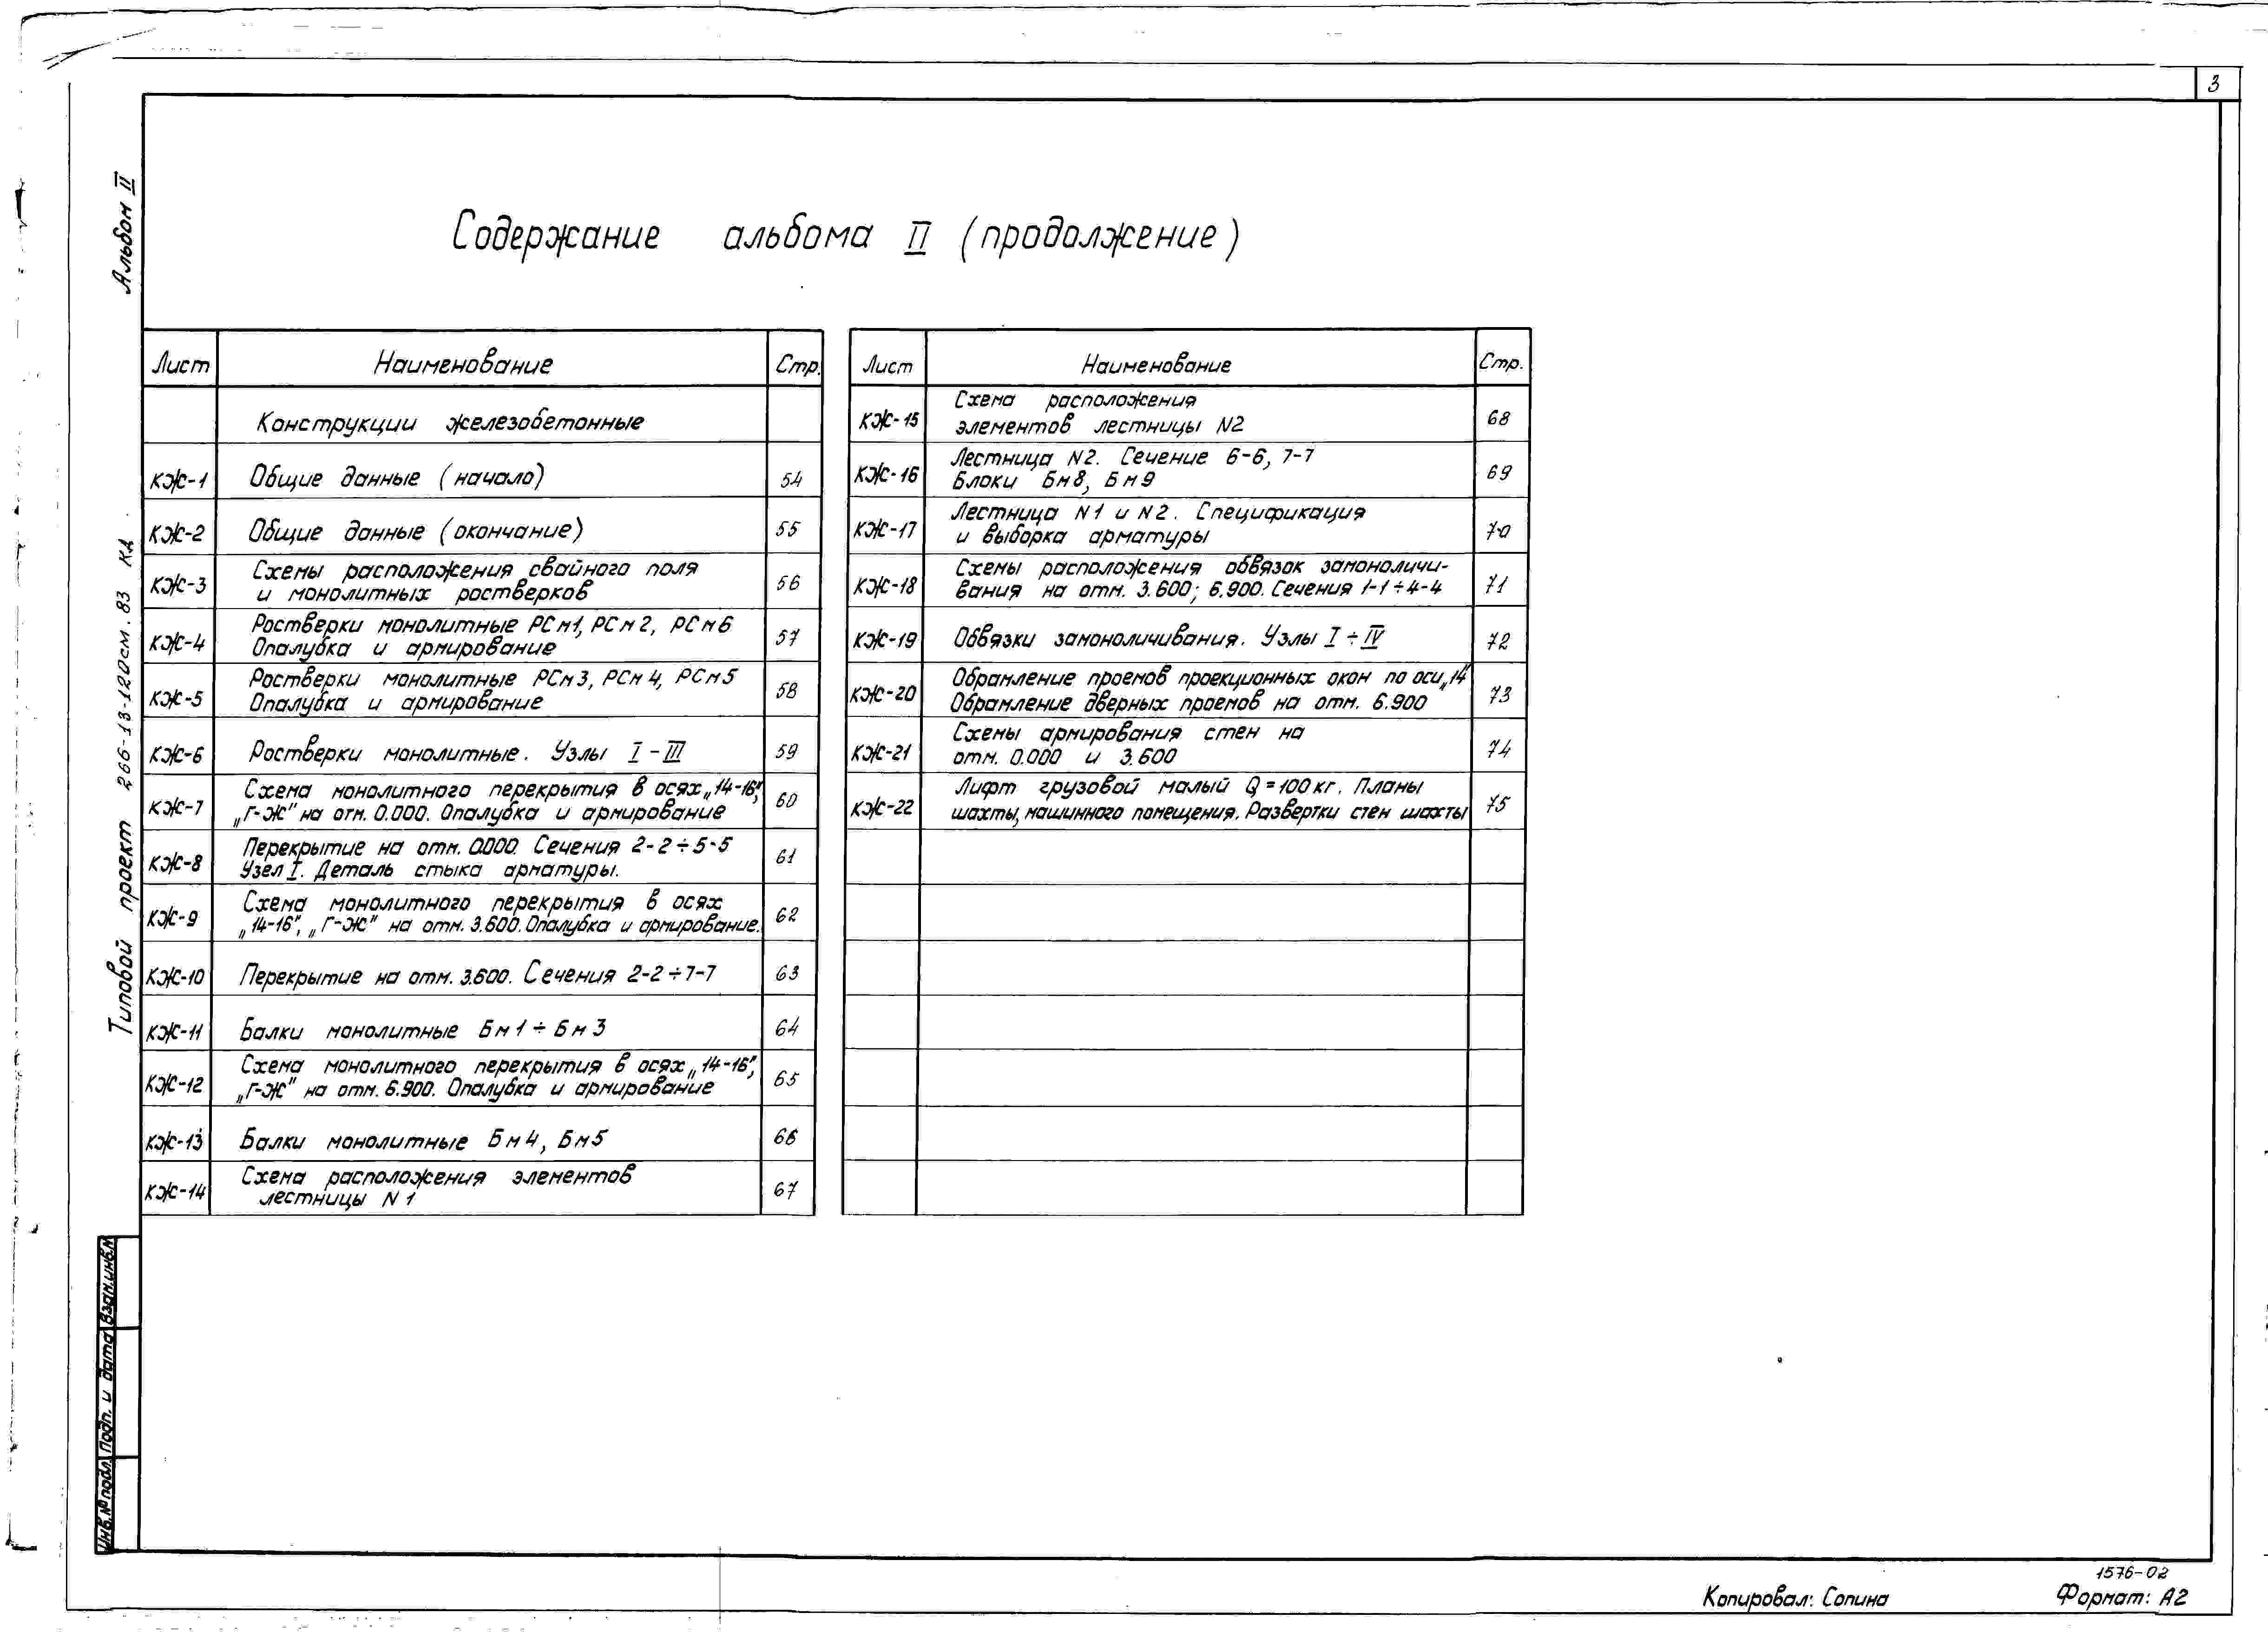 3
Альбом II
Типовой проект 266-13-120см.83 КА
Содержание альбома II (продолжение)
Лист Наименование Стр.
Конструкции железобетонные
КЖ-1 Общие данные (начало) 54
КЖ-2 Общие данные (окончание) 55
КЖ-3 Схемы расположения свайного поля
и монолитных ростверков 56
КЖ-4 Ростверки монолитные РСм1, РСм2, РСм6
Опалубка и армирование 57
КЖ-5 Ростверки монолитные РСм3, РСм4, РСм5
Опалубка и армирование 58
КЖ-6 Ростверки монолитные. Узлы I-III 59
КЖ-7 Схема монолитного перекрытия в осях „14-16",
„Г-Ж" на отм. 0.000. Опалубка и армирование 60
КЖ-8 Перекрытие на отм. 0.000. Сечения 2-2÷5-5
Узел I. Деталь стыка арматуры. 61
КЖ-9 Схема монолитного перекрытия в осях
„14-16", „Г-Ж" на отм. 3.600. Опалубка и армирование. 62
КЖ-10 Перекрытие на отм. 3.600. Сечения 2-2÷7-7 63
КЖ-11 Балки монолитные Бм1÷Бм3 64
КЖ-12 Схема монолитного перекрытия в осях „14-16",
„Г-Ж" на отм. 6.900. Опалубка и армирование 65
КЖ-13 Балки монолитные Бм4, Бм5 66
КЖ-14 Схема расположения элементов
лестницы N1 67
Лист Наименование Стр.
КЖ-15 Схема расположения
элементов лестницы N2 68
КЖ-16 Лестница N2. Сечение 6-6, 7-7
Блоки Бм8, Бм9 69
КЖ-17 Лестница N1 и N2. Спецификация
и выборка арматуры 70
КЖ-18 Схемы расположения обвязок замоноличи-
вания на отм. 3.600; 6.900. Сечения 1-1÷4-4 71
КЖ-19 Обвязки замоноличивания. Узлы I÷IV 72
КЖ-20 Обрамление проемов проекционных окон по оси „14"
Обрамление дверных проемов на отм. 6.900 73
КЖ-21 Схемы армирования стен на
отм. 0.000 и 3.600 74
КЖ-22 Лифт грузовой малый Q=100кг. Планы
шахты, машинного помещения. Развертки стен шахты 75
Инв.№подл. Подп. и дата Взам.инв.№
1576-02
Копировал: Сопина Формат: А2